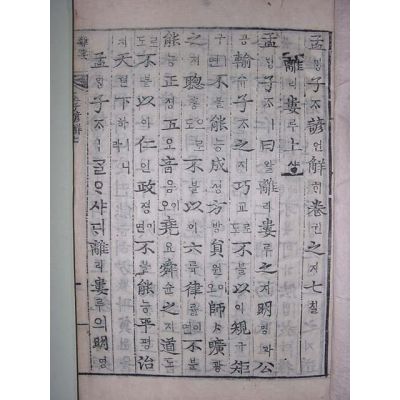 孟ᄆᆡᆼ子ᄌᆞ諺언解ᄒᆡ卷권之지七칠
離리婁루上샹
孟ᄆᆡᆼ子ᄌᆞㅣ曰왈離리婁루之지明명과公
공輸슈子ᄌᆞ之지巧교로도不블以이規규矩
구ㅣ면不블能능成셩方방員원이오師ᄉᆞ曠광
之지聰총으로도不블以이六륙律률이면不블
能능正졍五오音음이오堯요舜슌之지道도
로도不블以이仁인政졍이면不블能능平평治
티天텬下하ㅣ니라
孟ᄆᆡᆼ子ᄌᆞㅣᄀᆞᆯᄋᆞ샤ᄃᆡ離리婁루의明명